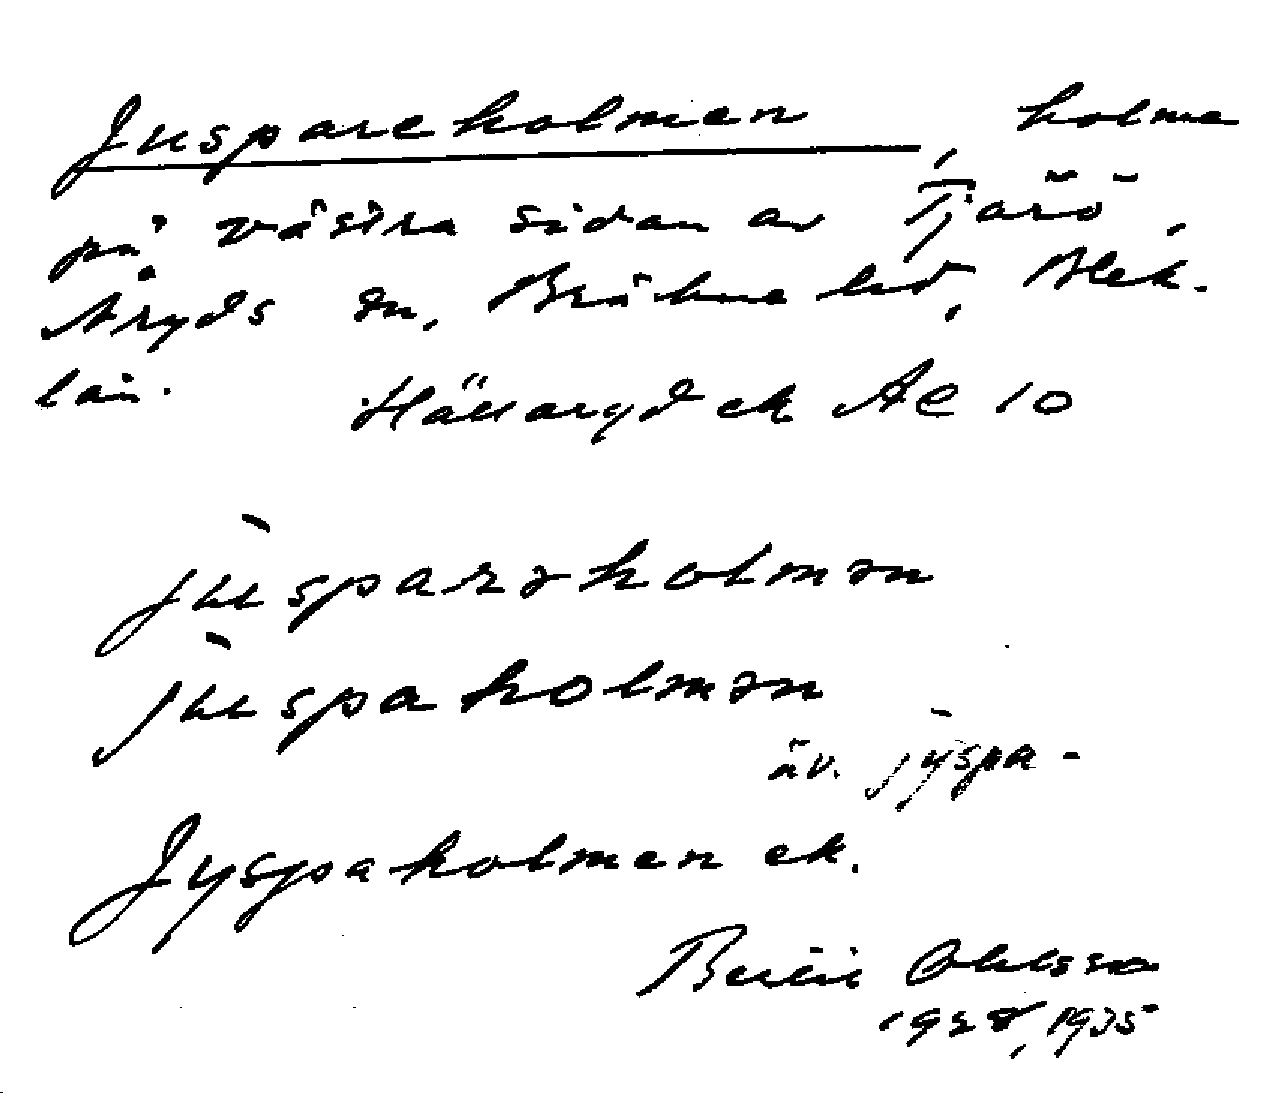 Juspareholmen, holme
på västra sidan av Tjärö,
Åryds sn, Bräkne hd, Blek.
län. Hällaryd ek Ae 10
jùsparəholmən
jùspaholmən
äv. jỳspa-
Jyspaholmen ek.
Bertil Ohlsson
1928, 1935